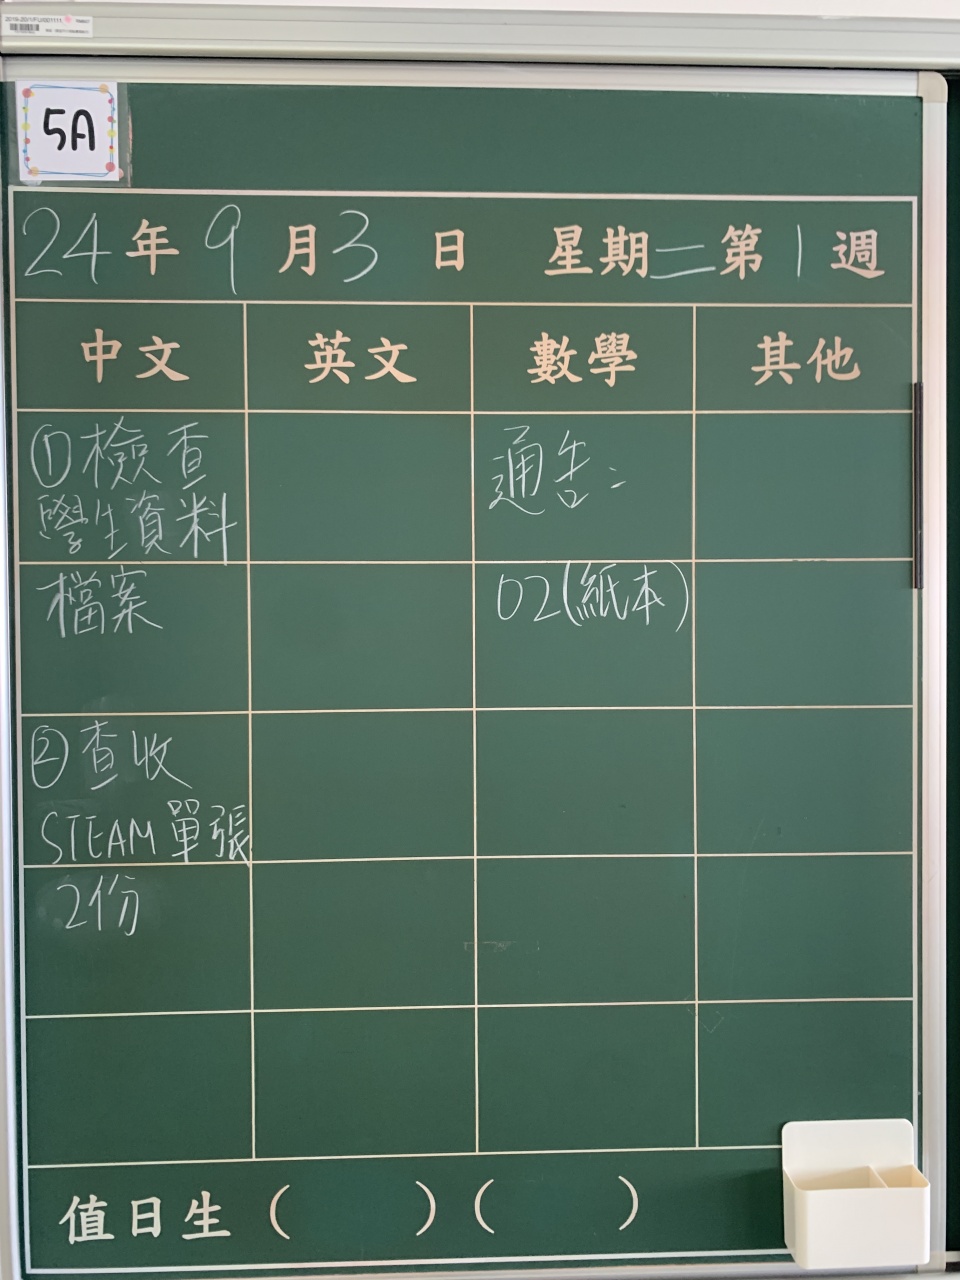 5A
24年9月3日 星期二第1週
中文 英文 數學 其他
①檢查
學生資料
檔案
②查收
STEAM單張
2份
通告:
02(紙本)
值日生( )( )